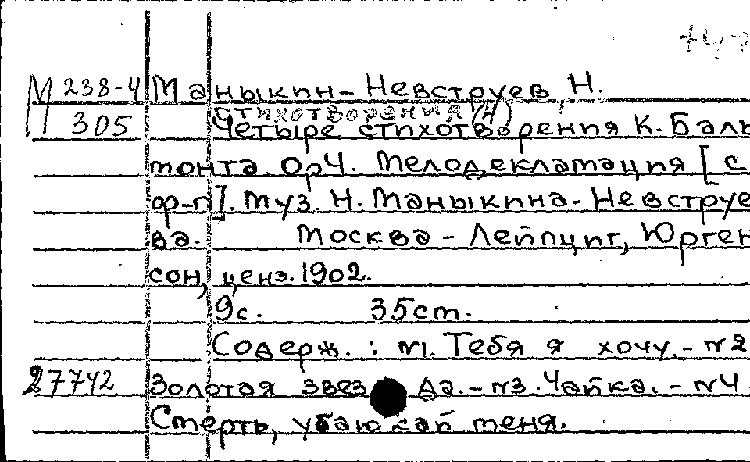 М 238-4 Маныкин-Невструев, Н.
Стихотворения (4)
305 Четыре стихотворения К. Баль
монта. Ор 4. Мелодекламация [с
ф-п]. Муз. Н. Маныкина-Невструе
ва. Москва - Лейпциг, Юрген
сон, ценз. 1902.
9с. 35см.
Содерж.: №1. Тебя я хочу. - №2
27742 Золотая звезда. - №3. Чайка. - №4.
Смерть, убаюкай меня.